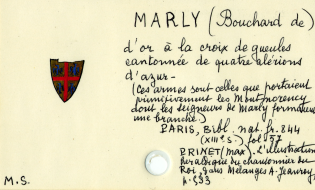 MARLY (Bouchard de)
d'or à la croix de gueules
cantonnée de quatre alérions
d'azur -
(Ces armes sont celles que portaient
primitivement les Montmorency
dont les seigneurs de Marly formaient
une branche.)
PARIS, Bibl. nat. fr. 844
(XIIIe s.) fol 57
PRINET (Max). L'illustration
héraldique du chansonnier du
Roi, dans Mélanges A. Jeanroy,
p. 533
M.S.